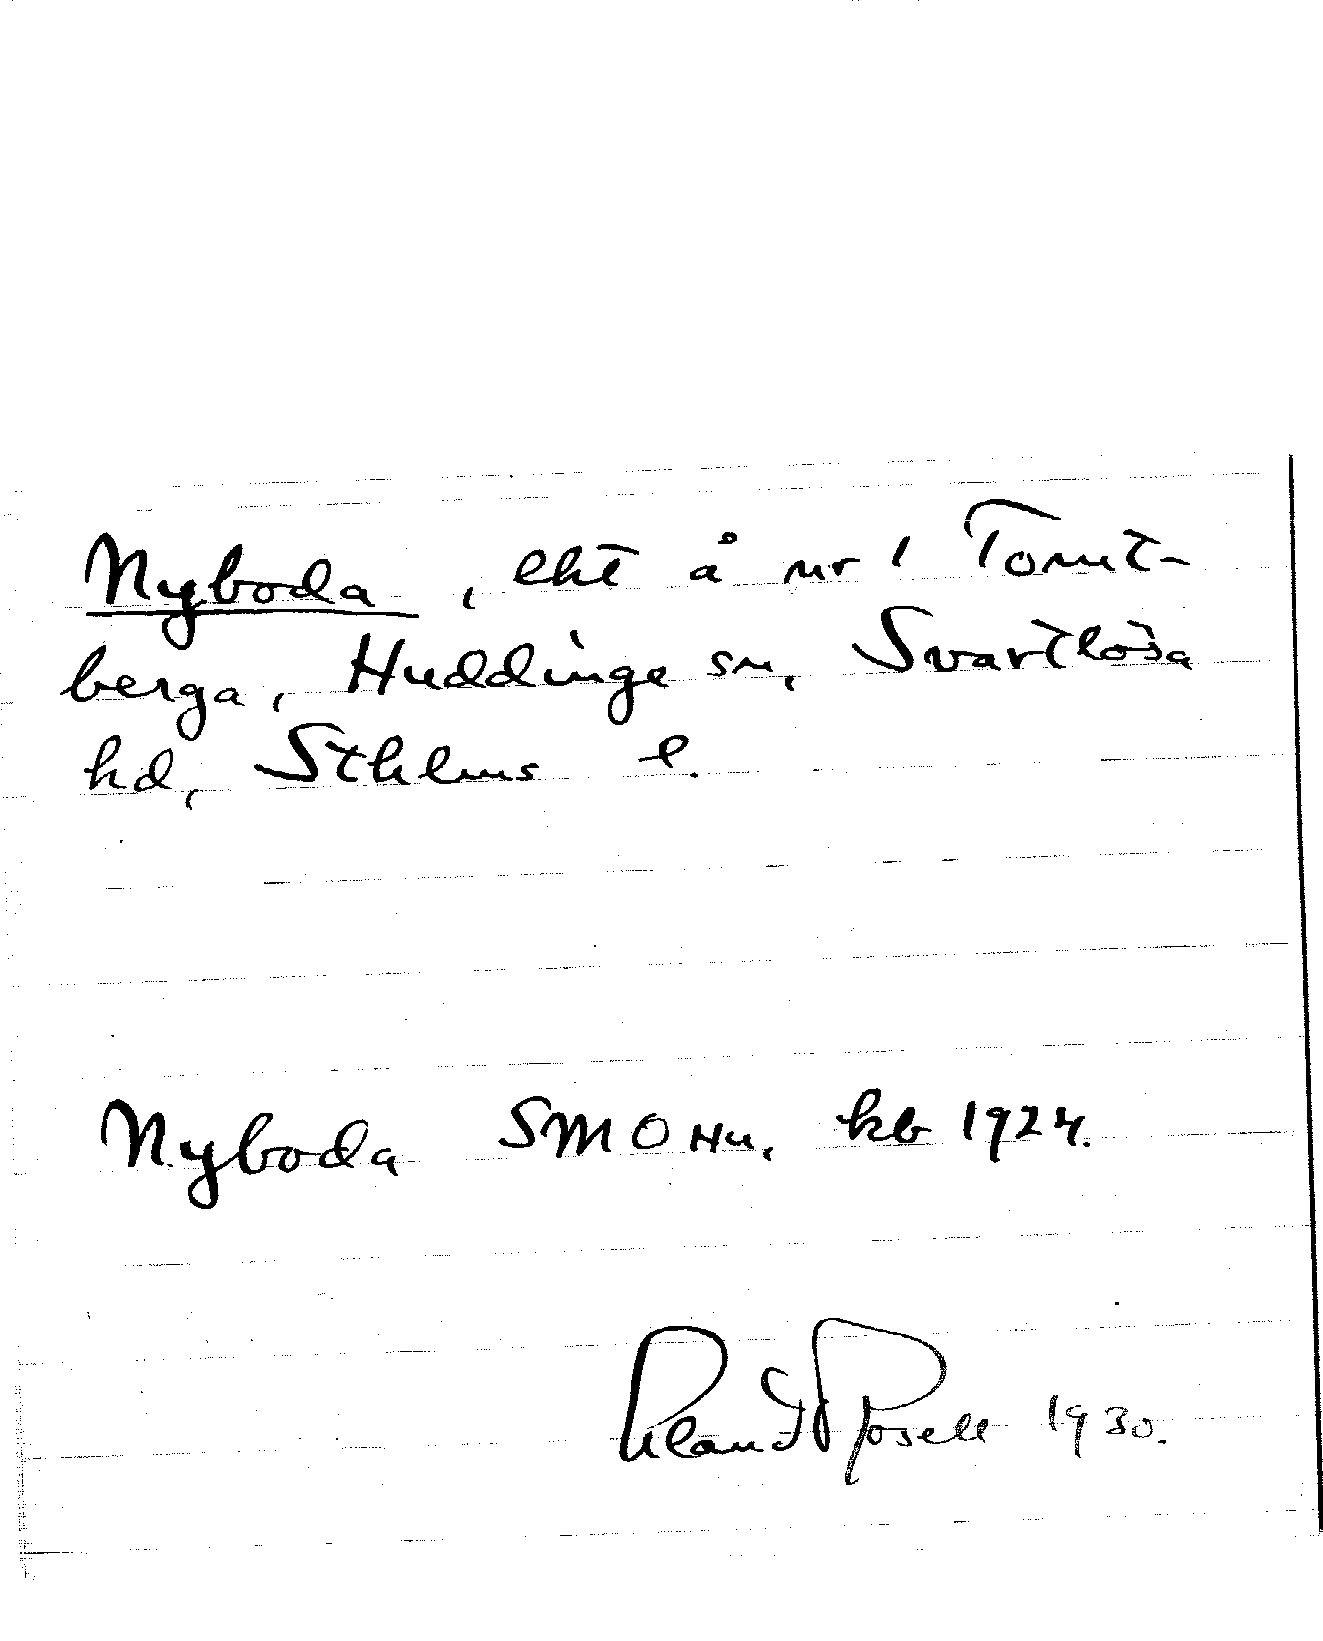 Nyboda, lht å nr 1 Tomt-
berga, Huddinge sn, Svartlösa
hd, Sthlms l.
Nyboda SMOHu, kb 1924.
Rosell 1930.